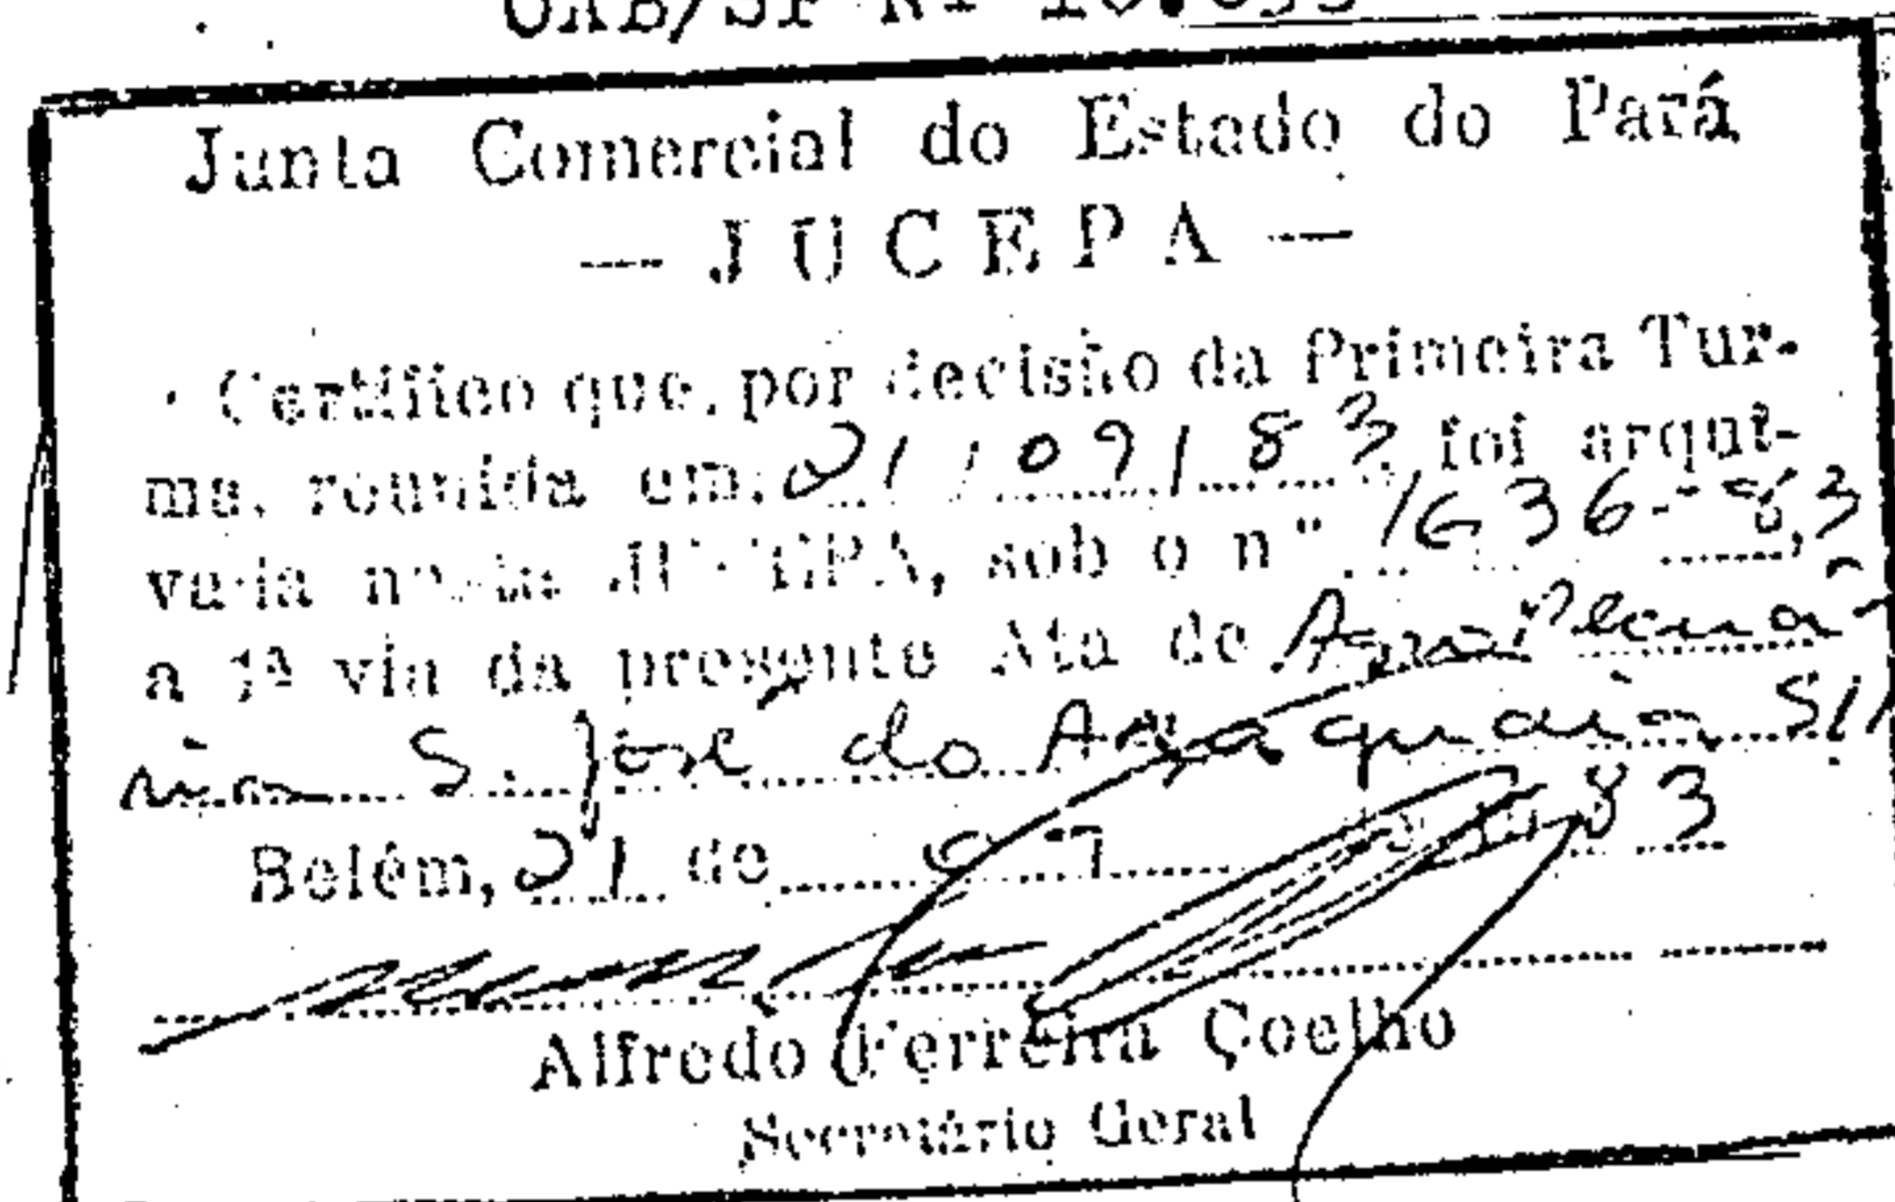 Junta Comercial do Estado do Pará
— JUCEPA —
Certifico que, por decisão da Primeira Tur-
ma, reunida em, 21/09/83, foi arqui-
vada nesta JUCEPA, sob o nº 1636-83,
a 1ª via da presente Ata de AgroPecuá-
ria S. José do Araguaia S/A
Belém, 21 de 09 83
Alfredo Ferreira Coelho
Secretário Geral